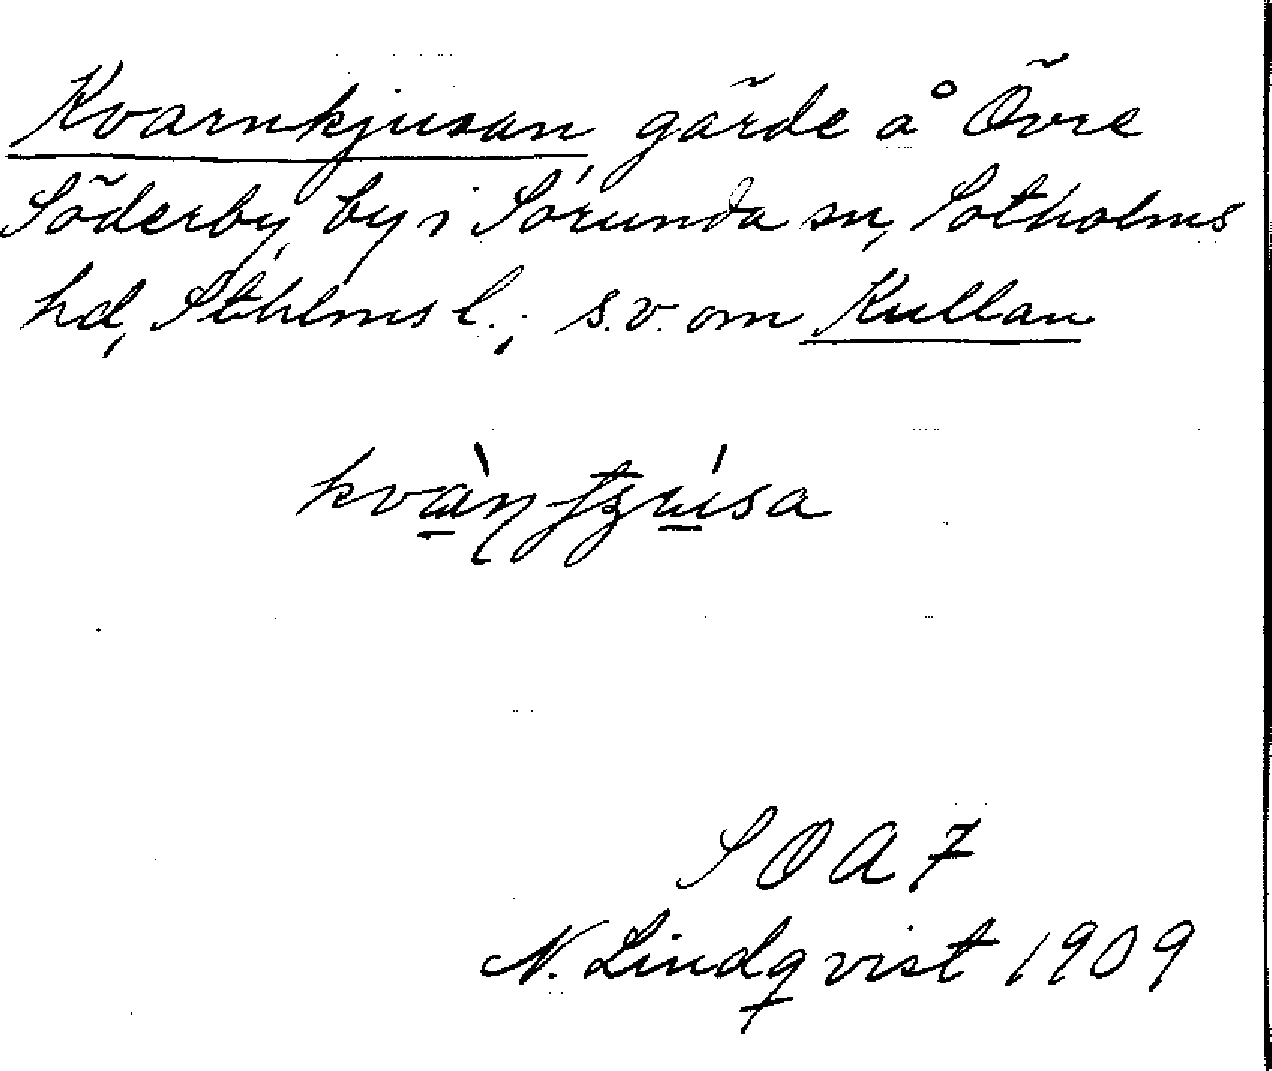 Kvarnkjusan, gärde å Övre
Söderby, by i Sorunda sn, Sotholms
hd, Sthlms l.; s.v. om Kullan
SOA 7
N. Lindqvist 1909